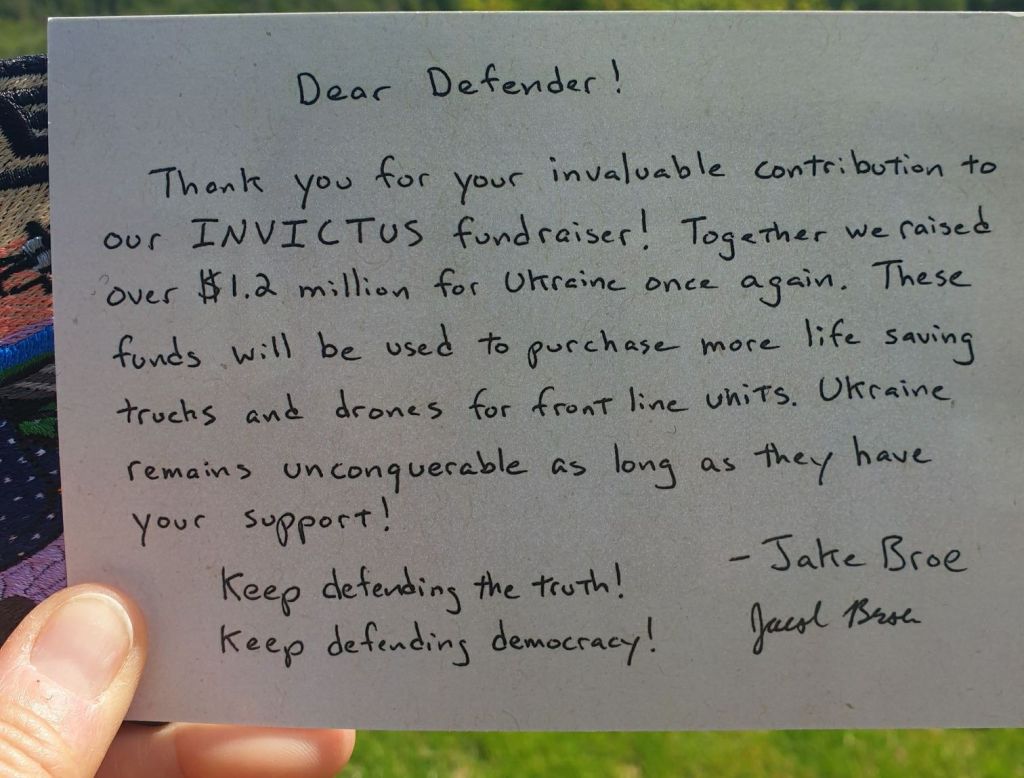 Dear Defender!
Thank you for your invaluable contribution to
our INVICTUS fundraiser! Together we raised
over $1.2 million for Ukraine once again. These
funds will be used to purchase more life saving
trucks and drones for front line units. Ukraine
remains unconquerable as long as they have
your support!
- Jake Broe
Keep defending the truth!
Keep defending democracy!
Jacob Broe